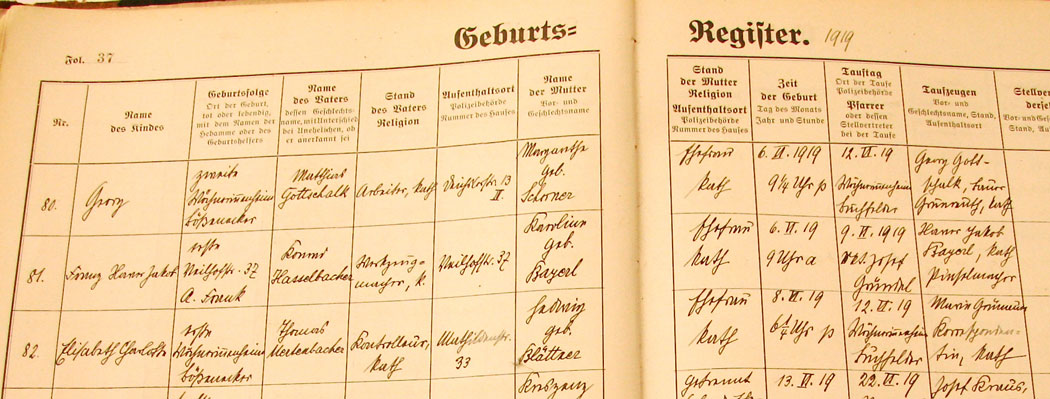 Geburts=
Register. 1919
Fol. 37
Nr.
Name
des Kindes
Geburtsfolge
Ort der Geburt,
tot oder lebendig,
mit dem Namen der
Hebamme oder des
Geburtshelfers
Name
des Vaters
dessen Geschlechts-
name, mit Unterschied
bei Unehelichen, ob
er anerkannt sei
Stand
des Vaters
Religion
Aufenthaltsort
Polizeibehörde
Nummer des Hauses
Name
der Mutter
Vor- und
Geschlechtsname
Stand
der Mutter
Religion
Aufenthaltsort
Polizeibehörde
Nummer des Hauses
Zeit
der Geburt
Tag des Monats
Jahr und Stunde
Tauftag
Ort der Taufe
Polizeibehörde
Pfarrer
oder dessen
Stellvertreter
bei der Taufe
Taufzeugen
Vor- und
Geschlechtsname, Stand,
Aufenthaltsort
80.
Georg
zweite
Wöchnerinnenheim
Bößenecker
Mathias
Gottschalk
Arbeiter, kath
13
II.
Margaretha
geb.
Schorner
Ehefrau
kath
6. VI. 1919
9¼ Uhr p
12. VI. 19
Wöchnerinnenheim
Buchfelder
Georg Gott-
schalk,
kath
81.
Franz Hans Jakob
erste
Veilhofstr. 37
A. Frank
Konrad
Hasselbacher
Werkzeug-
macher, k.
Veilhofstr. 37
Karolina
geb.
Bayerl
Ehefrau
kath
6. VI. 19
9 Uhr a
9. VI. 1919
Josef
Gründel
Hans Jakob
Bayerl, kath
82.
Elisabeth Charlotte
erste
Wöchnerinnenheim
Bößenecker
Thomas
Mertenbacher
Kontrolleur,
kath
Mathildenstr.
33
Hedwig
geb.
Blättner
Ehefrau
kath
8. VI. 19
Uhr p
12. VI. 19
Wöchnerinnenheim
Buchfelder
Maria
Korrespondent-
tin, kath
Kreszenz
getrennt
13. VI. 19
22. VI. 19
Josef Kraus,